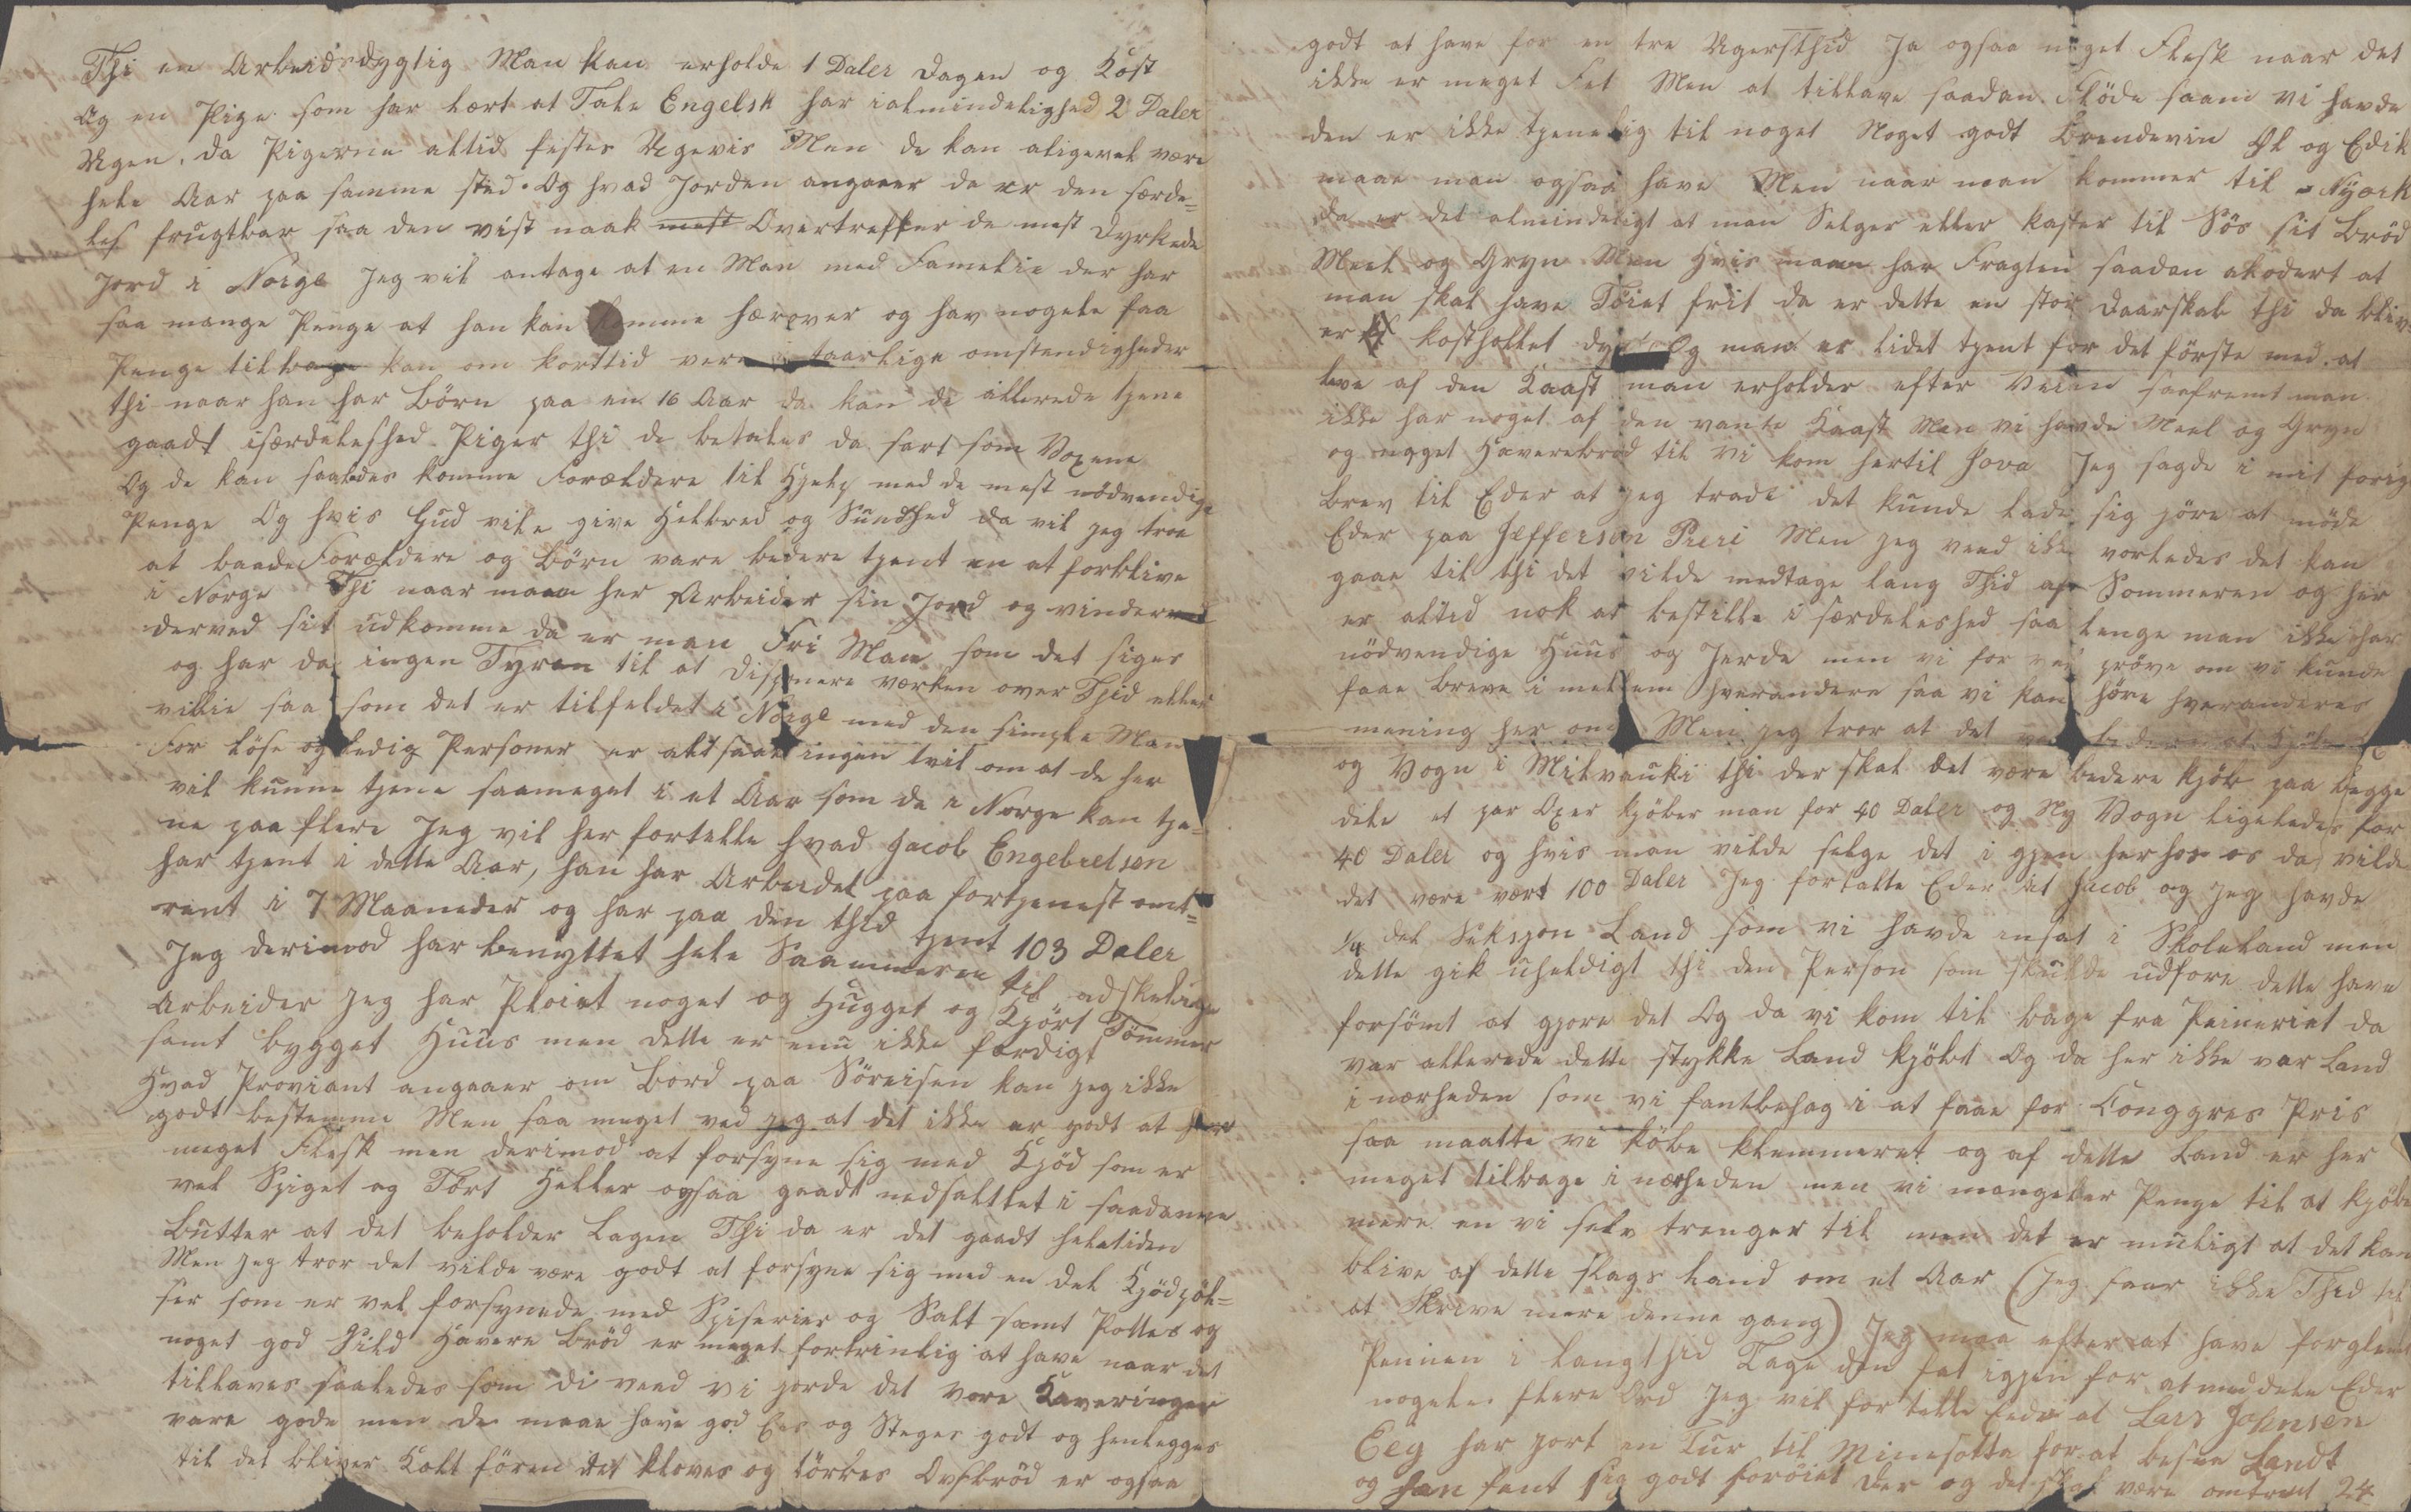 Thi en Arbeidsdygtig Man kan erholde 1 Daler Dagen og Kost
Og en Pige som har lært at Tale Engelsk har ialmindelighed 2 Daler
Ugen. da Pigerne altid festes Ugevis Men de kan aligevel være
hele Aar paa samme sted. Og hvad Jorden angaaer da er den særde=
les frugtbar saa den vist naak mest Overtreffer de mest Dyrkede
Jord i Norge Jeg vil antage at en Man med Famelie der har
saa mange Penge at han kan komme hærover og hav nogele faa
Penge tilbage kan om korttid vere i taarlige omstendigheder
thi naar han har Börn paa en 16 Aar da kan di allerede tjene
gaadt isærdeleshed Piger thi de betales da sart som Voxene
Og de kan saaledes komme Forældere til Hjelp med de mest nödvendige
Penge Og hvis Gud vile give Helbred og Sundhed da vil jeg troe
at baade Forældere og Börn vare bedere tjent en at forblive
i Norge Thi naar maan her Arbeider sin Jord og vinder
derved sit udkomme da er man Fri Man som det siges
og har da ingen Tyran til at Disponere værken over Thid eller
villie saa som det er tilfeldet i Norge med den simple Man
For löse og ledig Personer er altsaa ingen tvil om at de her
vil kunne tjene saameget i et Aar som de i Norge kan tje=
ne paa flere Jeg vil her fortelle hvad Jacob Engebretsen
har tjent i dette Aar, han har Arbeidet paa fortjenest omt=
rent i 7 Maaneder og har paa den thid tjent 103 Daler
Jeg derimod har benyttet hele Saammeren til adskelige
Arbeider Jeg har Ploiet noget og Hugget og Kjört Tömmer
samt bygget Huus men dette er enu ikke færdigt
Hvad Proviant angaaer om Bord paa Söreisen kan jeg ikke
godt bestemme Men saa meget ved jeg at det ikke er godt at have
meget Flesk men derimod at forsyne sig med Kjöd som er
vel Spiget og Tört Heller ogsaa gaadt nedsalttet i saadanne
Butter at det beholder Lagen Thi da er det gaadt heletiden
Men jeg tror det vilde være godt at forsyne sig med en del Kjödpöl=
ser som er vel forsynede med Spiserier og Salt samt Pottes og
noget god Sild Havere Bröd er meget fortrinlig at have naar det
tillaves saaledes som Di veed vi gorde det Vore Kaveringer
vare gode men de maae have god Ees og Steges godt og henlegges
til det bliver Kalt fören det kloves og törkes Ovsbröd er ogsaa
godt at have for en tre Ugersthid Ja ogsaa noget Flesk naar det
ikke er meget Fet Men at tillave saadan Flöde saam vi havde
den er ikke tjenelig til noget Noget godt Brendevin Öl og Edik
maae man ogsaa have Men naar man kommer til Nyork
da er det almindeligt at man Selger eller kaster til Sös sit Bröd
Meel og Gryn Men Hvis maan har Fragten saadan akodert at
man skal have Töiet frit da er dette en stor Daarskab thi da bliv=
er kostholtet dyrt Og man er lidet tjent for det förste med at
leve af den Kaast man erholder efter Veien saafremt man
ikke har noget af den vante Kaast Men vi havde Meel og Gryn
og noget Haverebröd til vi kom hertil Jova Jeg sagde i mit forig
brev til Eder at jeg trode det kunde lade sig göre at möde
Eder paa Jefferson Preri Men jeg veed ikke vorledes det kan
gaae til thi det vilde medtage lang Thid af Sommeren og her
er altid nok at bestille i særdeleshed saa lenge man ikke har
nödvendige Huus og Jerde men vi for vel pröve om vi kunde
faae Breve i mellem hverandere saa vi kan höre hveranderes
mening her om Men jeg tror at det
og Vogn i Milvauki thi der skal det være bedere kjöb paa begge
dele et par Oxer kjöber man for 40 Daler og Ny Vogn ligeledes for
40 Daler og hvis man vilde selge det i gjen her hos os da vilde
det være vært 100 Daler Jeg fortalte Eder at Jacob og jeg havde
1/4 del Seksjon Land som vi havde insat i Skoleland men
dette gik uheldigt thi den Person som skulde udfore dette have
forsömt at gjore det Og da vi kom til bage fra Peineriet da
var allerede dette stykke Land kjöbt Og da her ikke var Land
i nærheden som vi fantbehag i at faae for Conggres Pris
saa maatte vi köbe klemmeret og af dette Land er her
meget tilbage i nærheden men vi mangeler Penge til at kjöbe
mere en vi selv trenger til men det er muligt at det kan
blive af dette slags Land om et Aar (Jeg faar ikke Thid til
at Skrive mere denne gang) Jeg maa efter at have forglemt
Pennen i langthid Tage den fat igjen for at meddele Eder
nogele flere Ord Jeg vil for telle Eder at Lars Johnsen
Eeg har gort en Tur til Minesotta for at besee Landt
og han fant sig godt forøiet der og det skal være omtrent 24